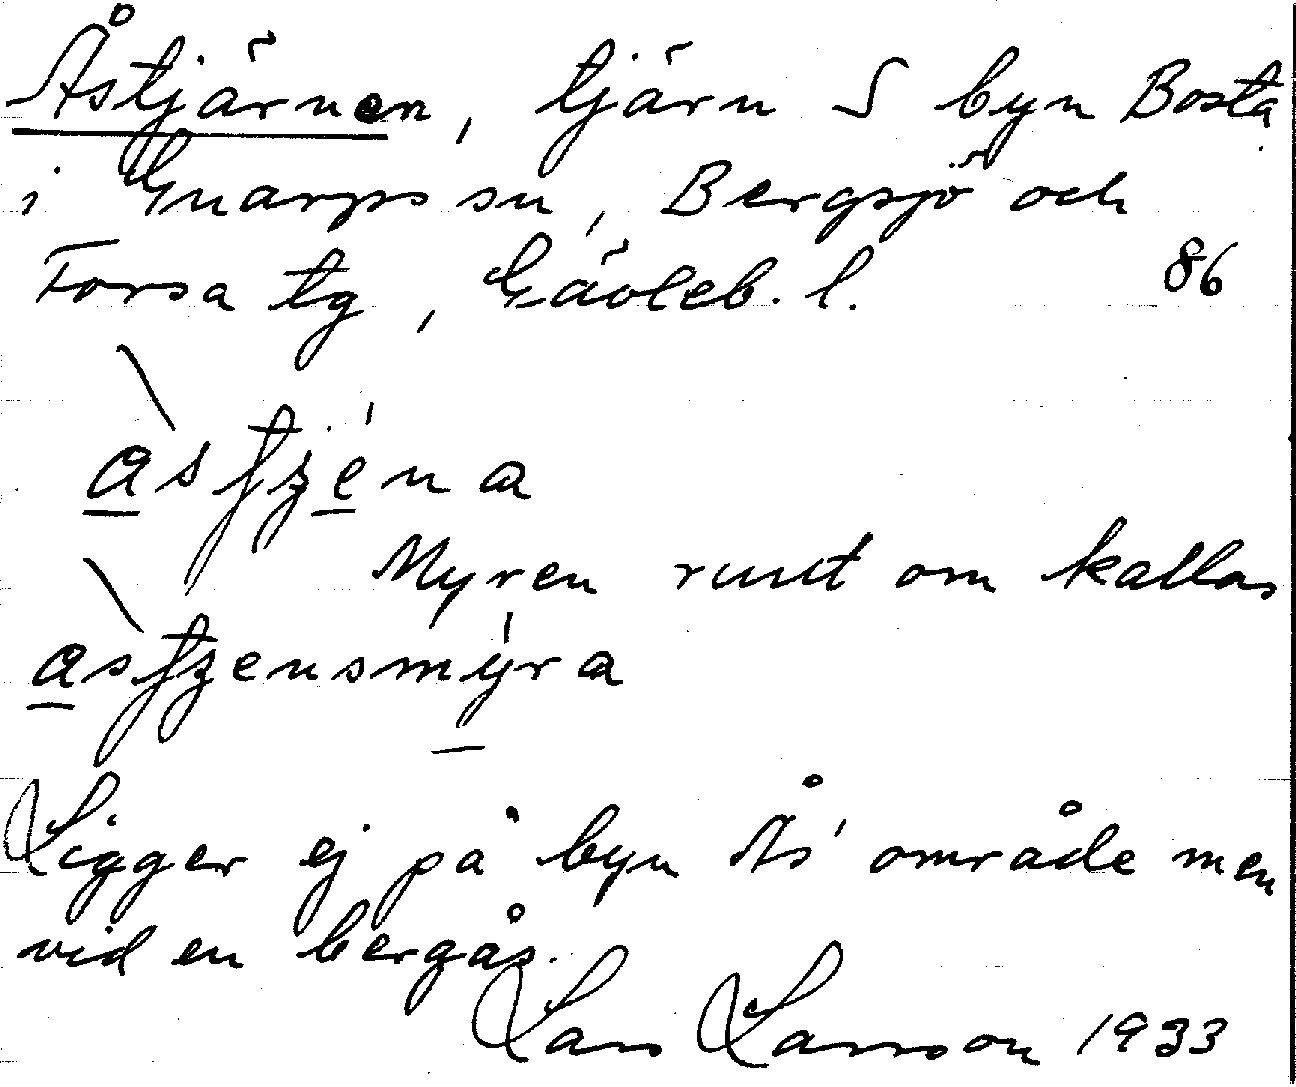 Åstjärnen, tjärn S byn Bosta
i Gnarps sn, Bergsjö och
Forsa tg, Gävleb. l. 86
Myren runt om kallas
Ligger ej på byn Ås' område men
vid en bergås.
Lars Larsson 1933